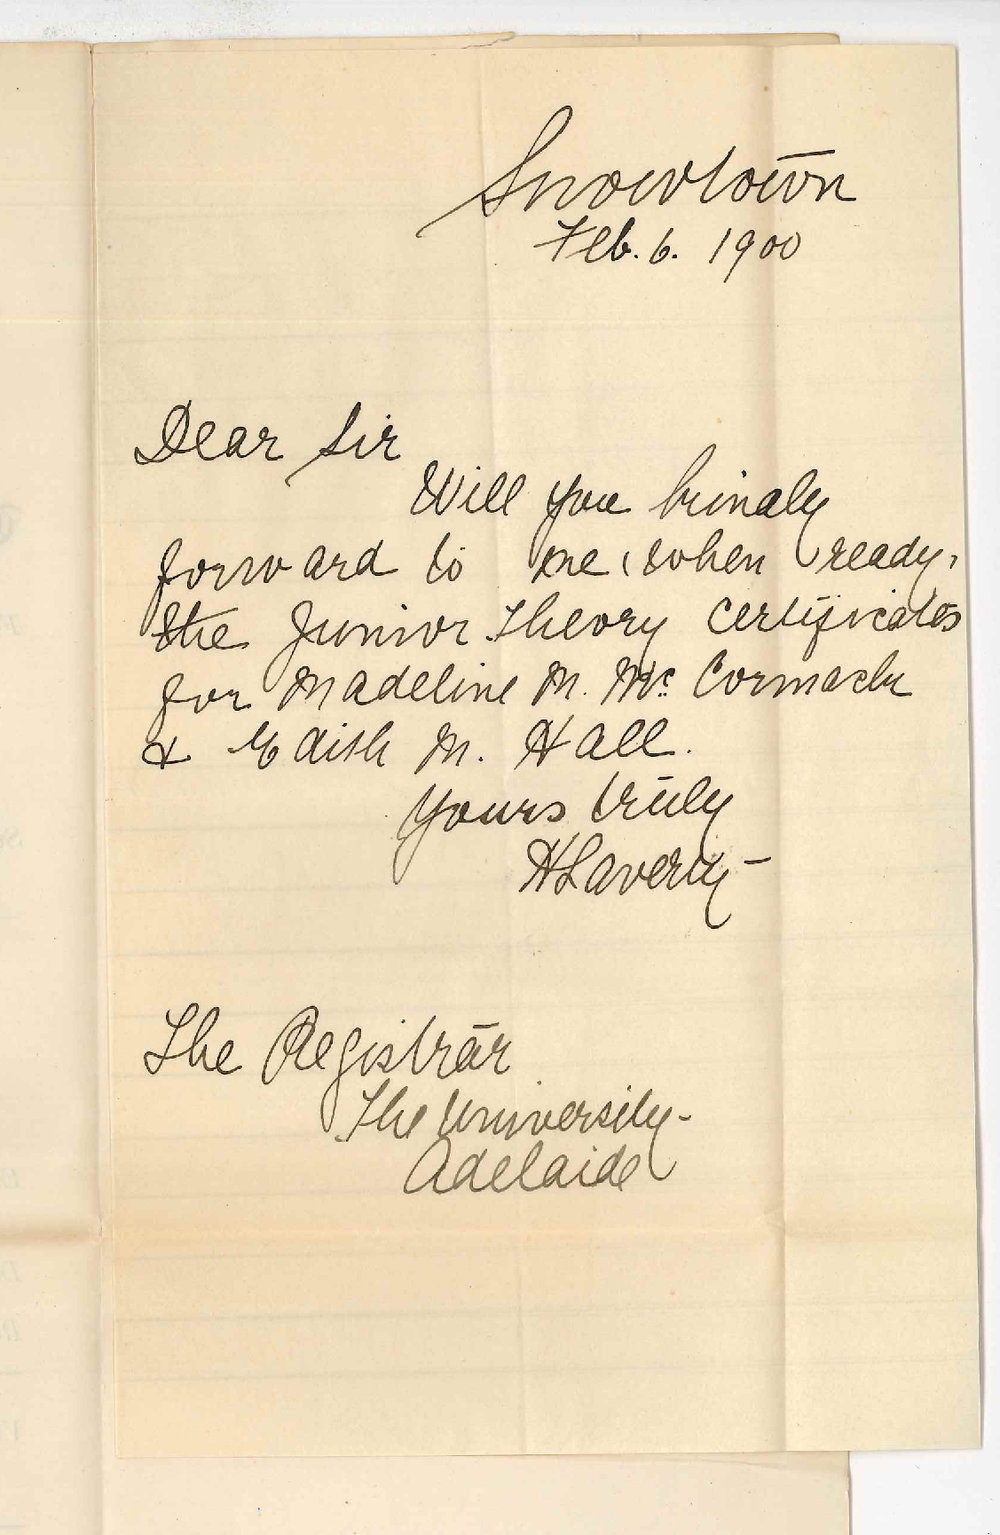 Snowtown
Feb. 6. 1900
Dear Sir
Will you kindly
forward to me, when ready,
the Junior Theory Certificates
for Madeline M. McCormack
& Edith M. Hall.
Yours truly
H Laverty
The Registrar
The University
Adelaide